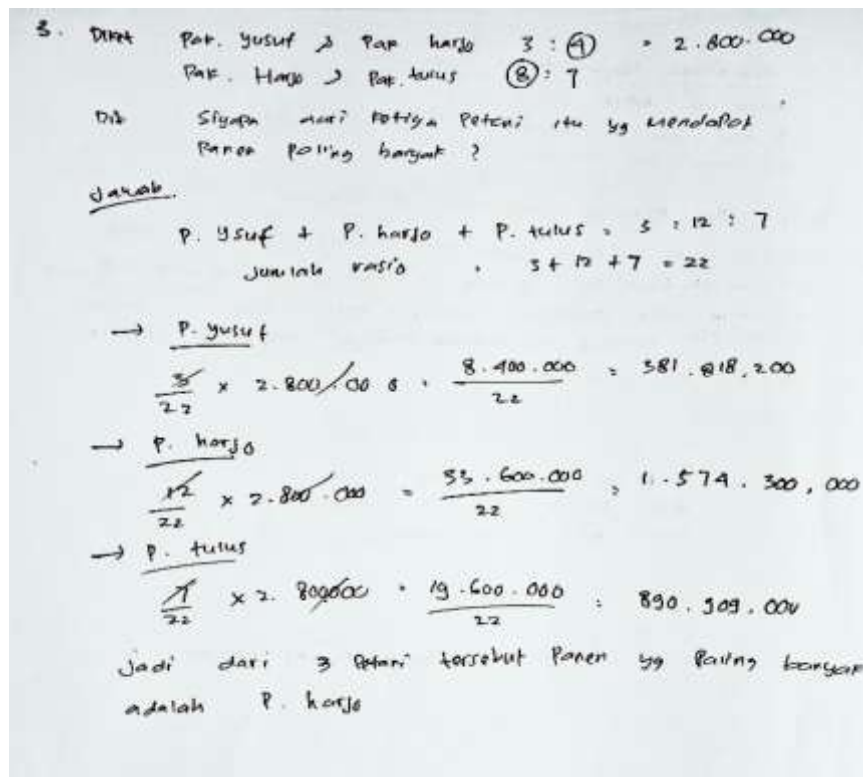 3. Diket Pak. Yusuf & Pak harjo 3 : 4 = 2.800.000
Pak. Harjo & Pak. tulus 8 : 7
Dit Siyapa dari ketiga Petani itu yg Mendapat
Panen Paling banyak ?
Jawab.
P. Ysuf + P. harjo + P. tulus = 3 : 12 : 7
Jumlah rasio = 3 + 12 + 7 = 22
→ P. Yusuf
3/22 × 2.800.000 = 8.400.000/22 = 381.818.200
→ P. harjo
12/22 × 2.800.000 = 33.600.000/22 = 1.574.300,000
→ P. tulus
7/22 × 2.800000 = 19.600.000/22 = 890.909.000
Jadi dari 3 Petani tersebut Panen yg Paling banyak
adalah P. harjo